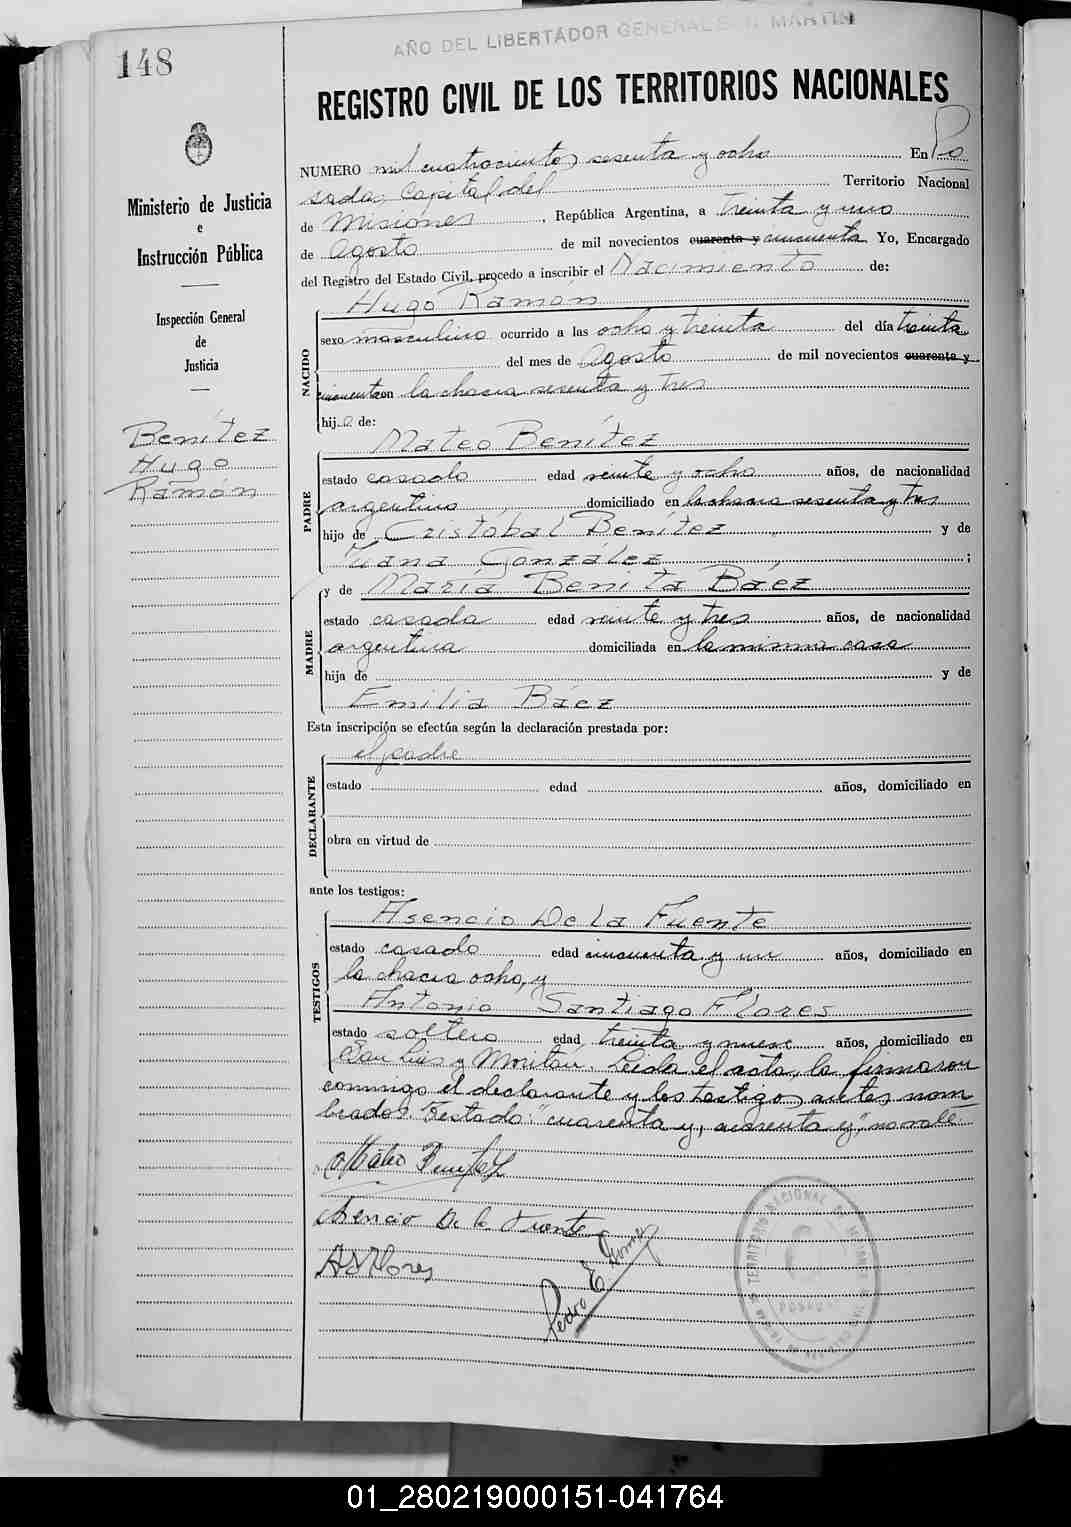 148
AÑO DEL LIBERTADOR GENERAL SAN MARTIN
REGISTRO CIVIL DE LOS TERRITORIOS NACIONALES
Ministerio de Justicia
e
Instrucción Pública
Inspección General
de
Justicia
Benítez
Hugo
Ramón
NUMERO mil cuatrocientos sesenta y ocho En Po
sadas, Capital del Territorio Nacional
de Misiones, República Argentina, a treinta y uno
de Agosto de mil novecientos cuarenta y cincuenta Yo, Encargado
del Registro del Estado Civil, procedo a inscribir el Nacimiento de:
Hugo Ramón
NACIDO
sexo masculino ocurrido a las ocho y treinta del día treinta
del mes de Agosto de mil novecientos cuarenta y
cincuenta en la chacra sesenta y tres
hijo de:
Mateo Benítez
PADRE
estado casado edad veinte y ocho años, de nacionalidad
argentino domiciliado en la chacra sesenta y tres
hijo de Cristóbal Benítez y de
Juana González ;
y de María Benita Báez
MADRE
estado casada edad veinte y tres años, de nacionalidad
argentina domiciliada en la misma casa
hija de y de
Emilia Báez
Esta inscripción se efectúa según la declaración prestada por:
el padre
DECLARANTE
estado edad años, domiciliado en
obra en virtud de
ante los testigos:
Asencio De La Fuente
TESTIGOS
estado casado edad cincuenta y un años, domiciliado en
la chacra ocho, y
Antonio Santiago Flores
estado soltero edad treinta y nueve años, domiciliado en
San Luis y Moritán. Leída el acta, la firmaron
conmigo el declarante y los testigos antes nom
brados. Testado: "cuarenta y, cuarenta y", no vale.
Mateo Benítez
Asencio De la Fuente
A S Flores
Pedro E.
TERRITORIO NACIONAL DE MISIONES
POSADAS
01_280219000151-041764